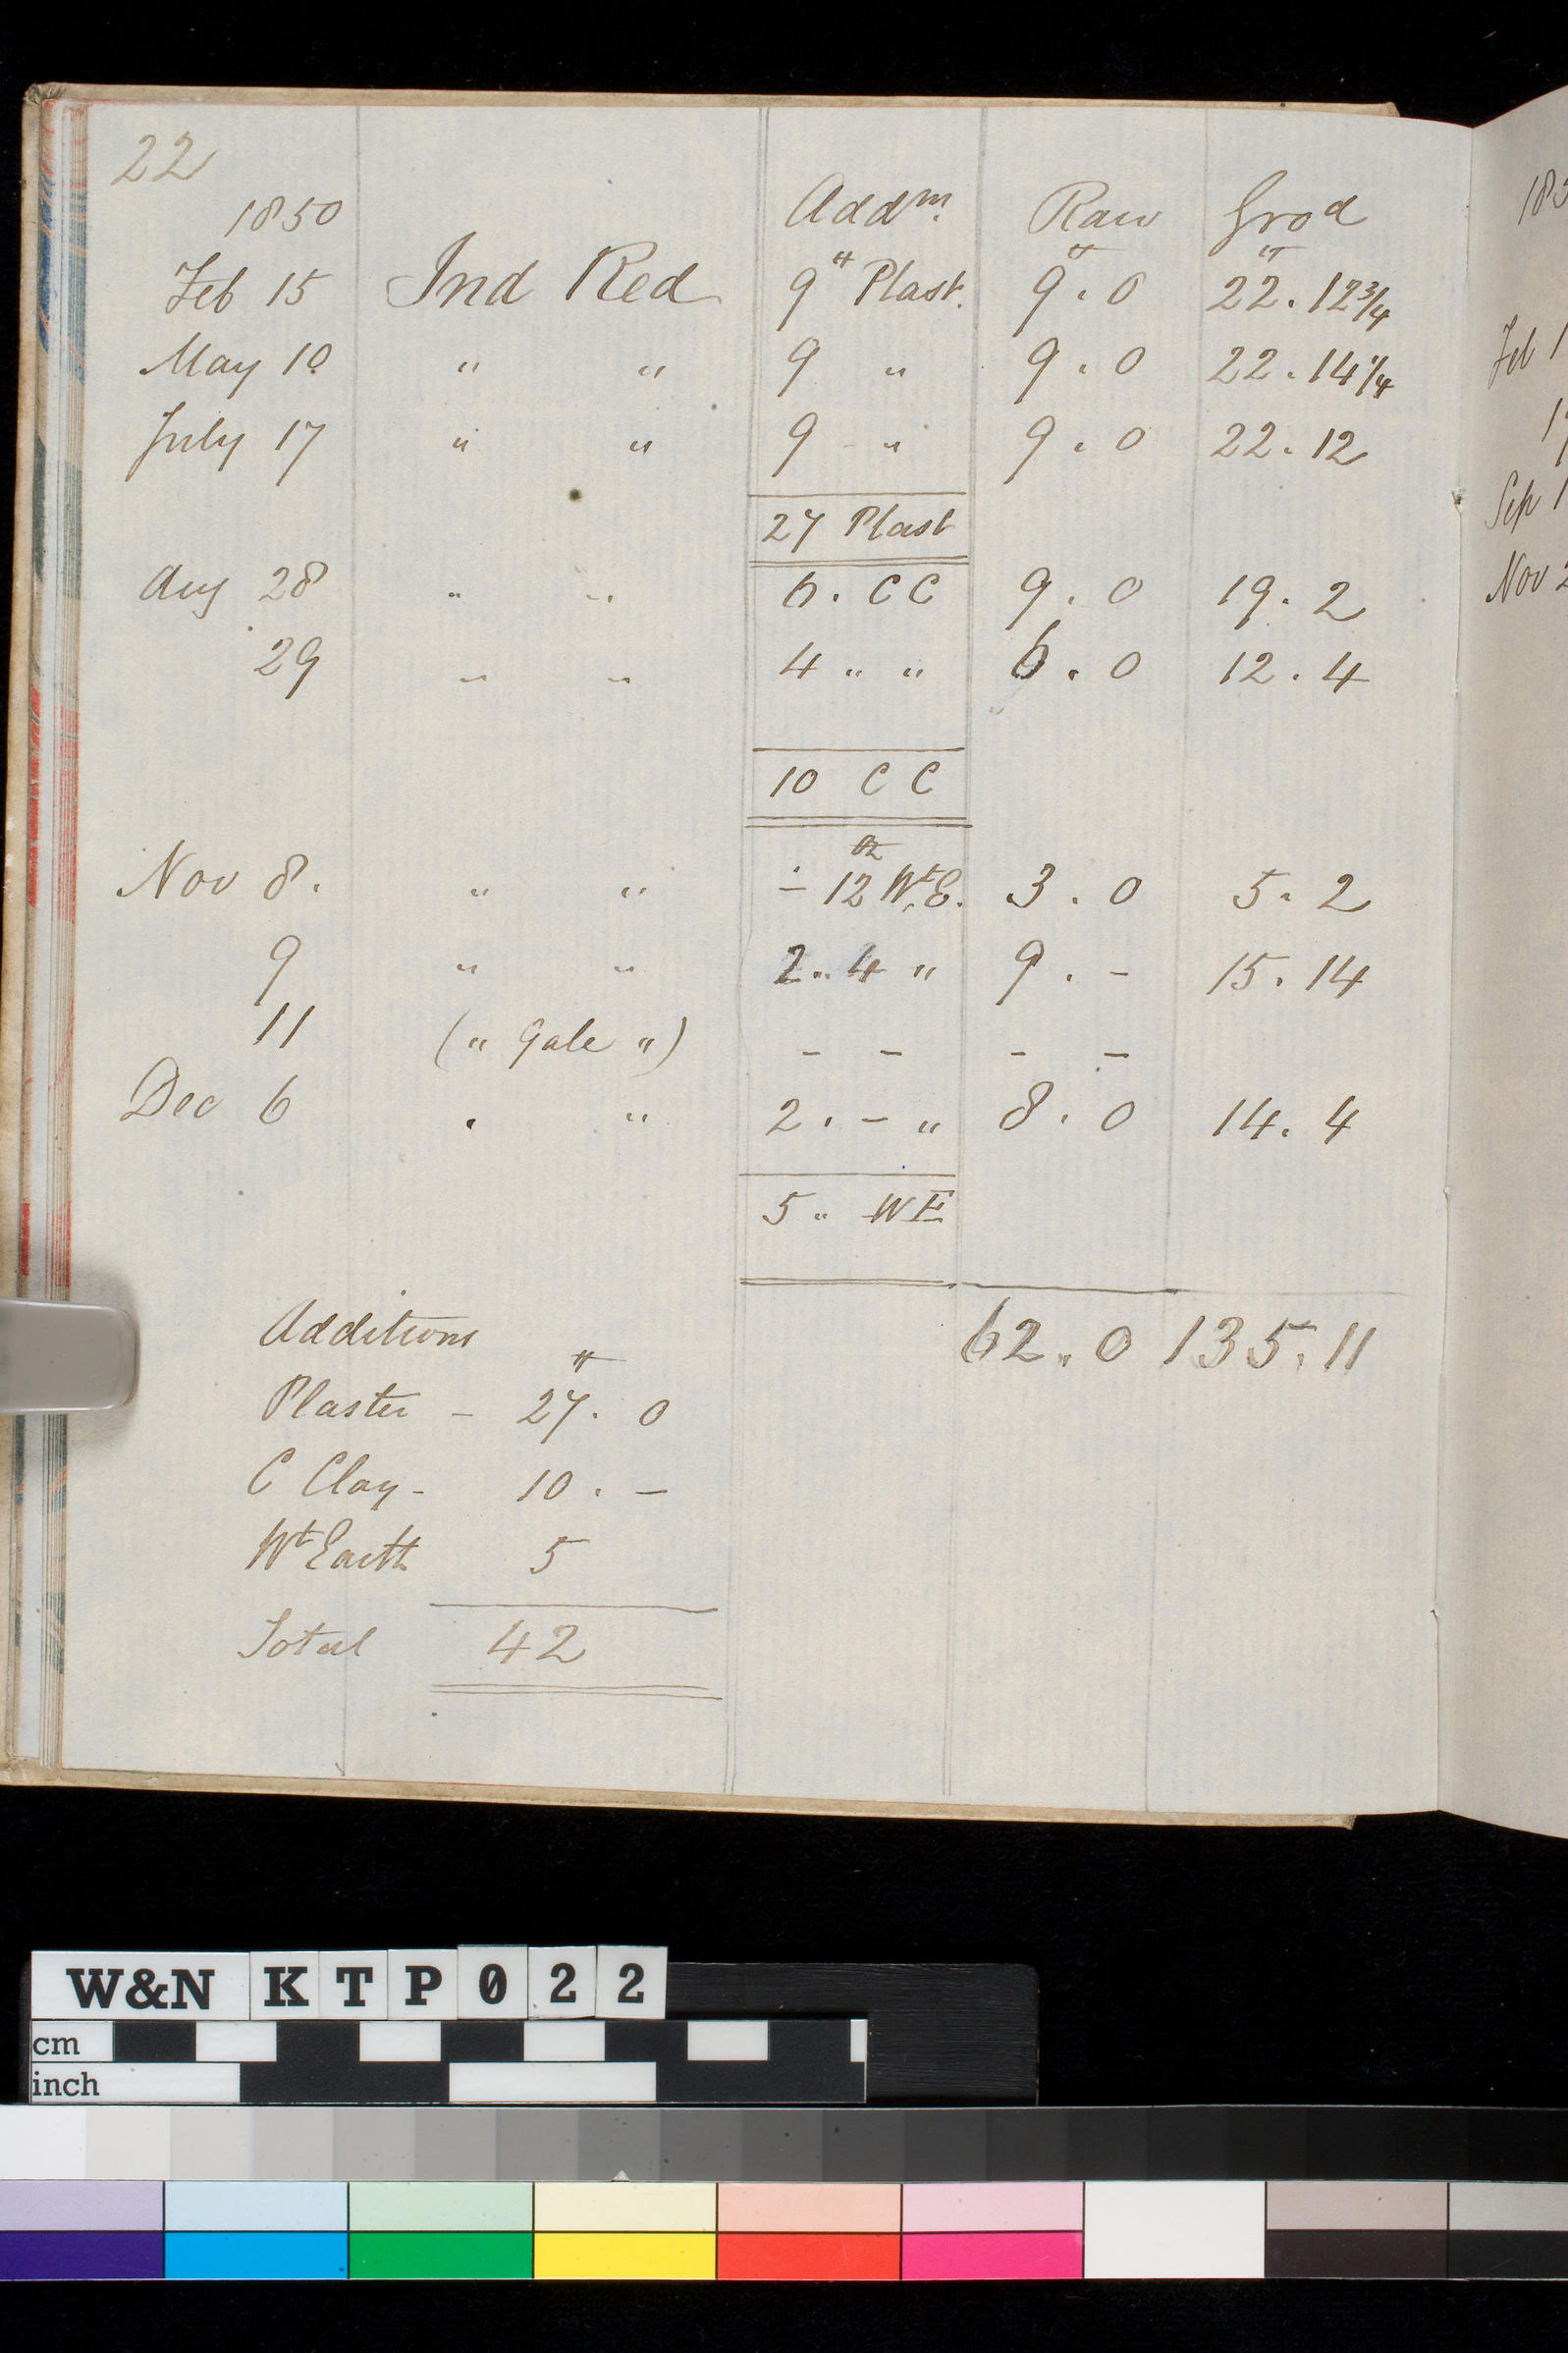 22
1850 Addm. Raw Grod
Feb 15 Ind Red 9 " Plast. 9 . 0 22 . 12 3/4
May 10 " " 9 " 9 . 0 22 . 14 1/4
July 17 " " 9 " 9 . 0 22 . 12
27 Plast
Aug 28 " " 6 . C C 9 . 0 19 . 2
29 " " 4 " " 6 . 0 12 . 4
10 C C
oz
Nov 8 . " " - 12 Wt E. 3 . 0 5 . 2
9 " " 2 .. 4 " 9 . - 15 . 14
11 ( " Gale " ) - - - -
Dec 6 . " 2 . - " 8 . 0 14 . 4
5 .. W E
62 .. 0 135 . 11
Additions
Plaster - 27 . 0
C Clay - 10 . -
Wt Earth 5
Total 42
183
Feb 1
1
Sep 1
Nov 2
W&N KTP022
cm
inch